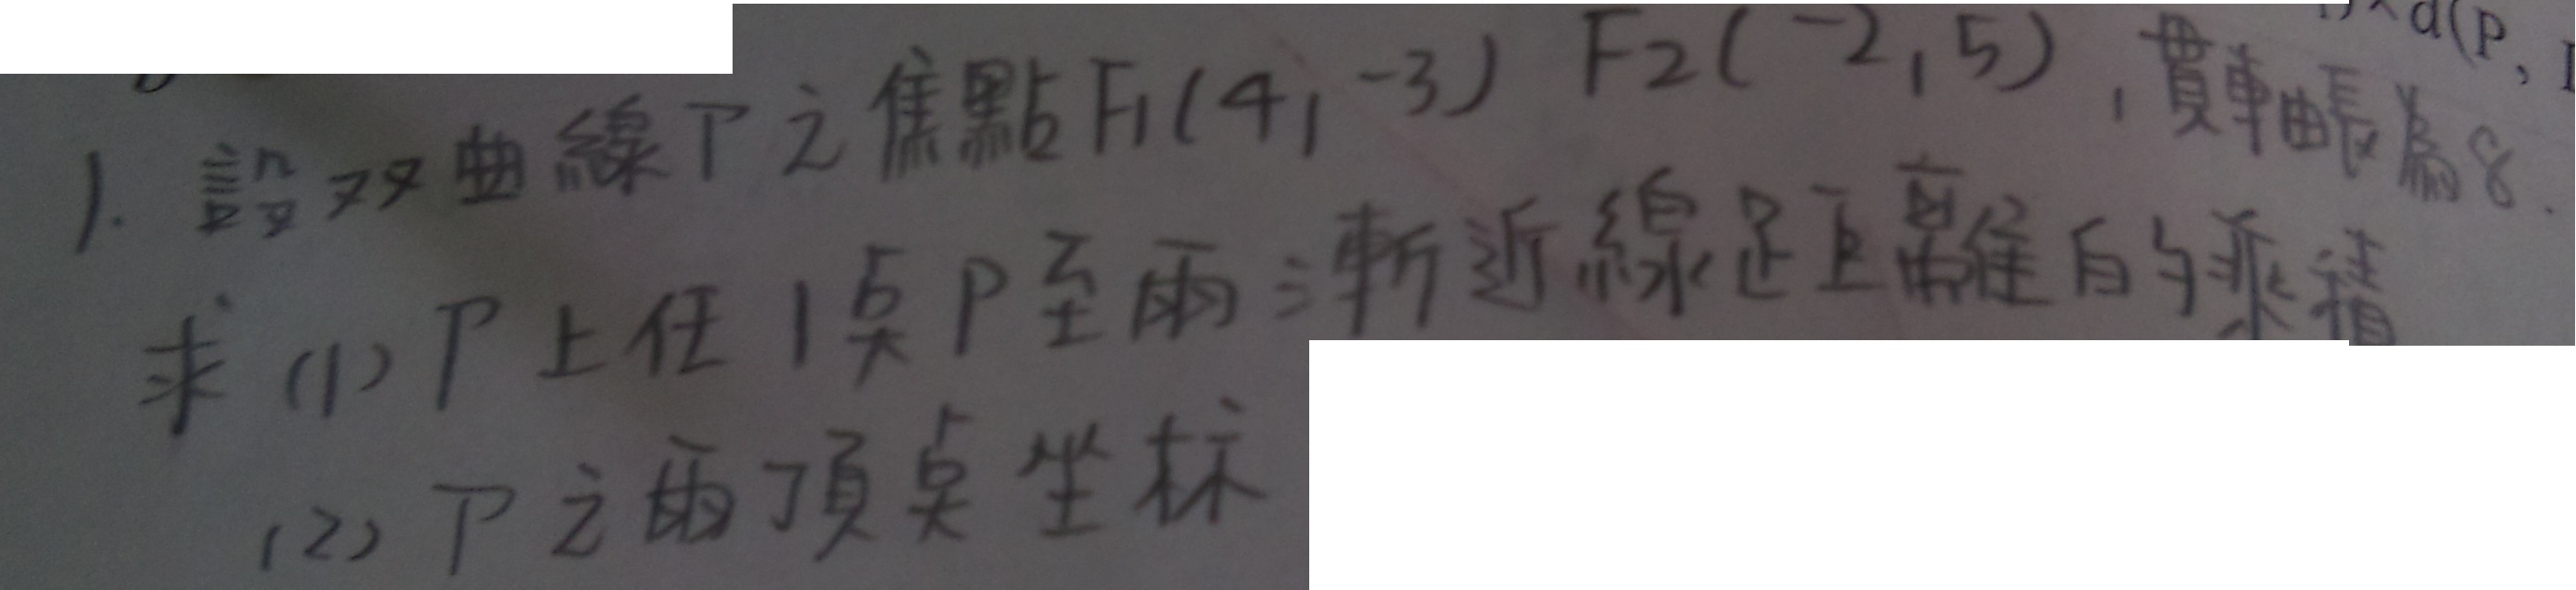 d(P,
1. 設双曲線Γ之焦點F1(4,-3) F2(-2,5),貫軸長為8.
求(1)Γ上任1点P至兩漸近線距離的乘積
(2)Γ之兩頂点坐标